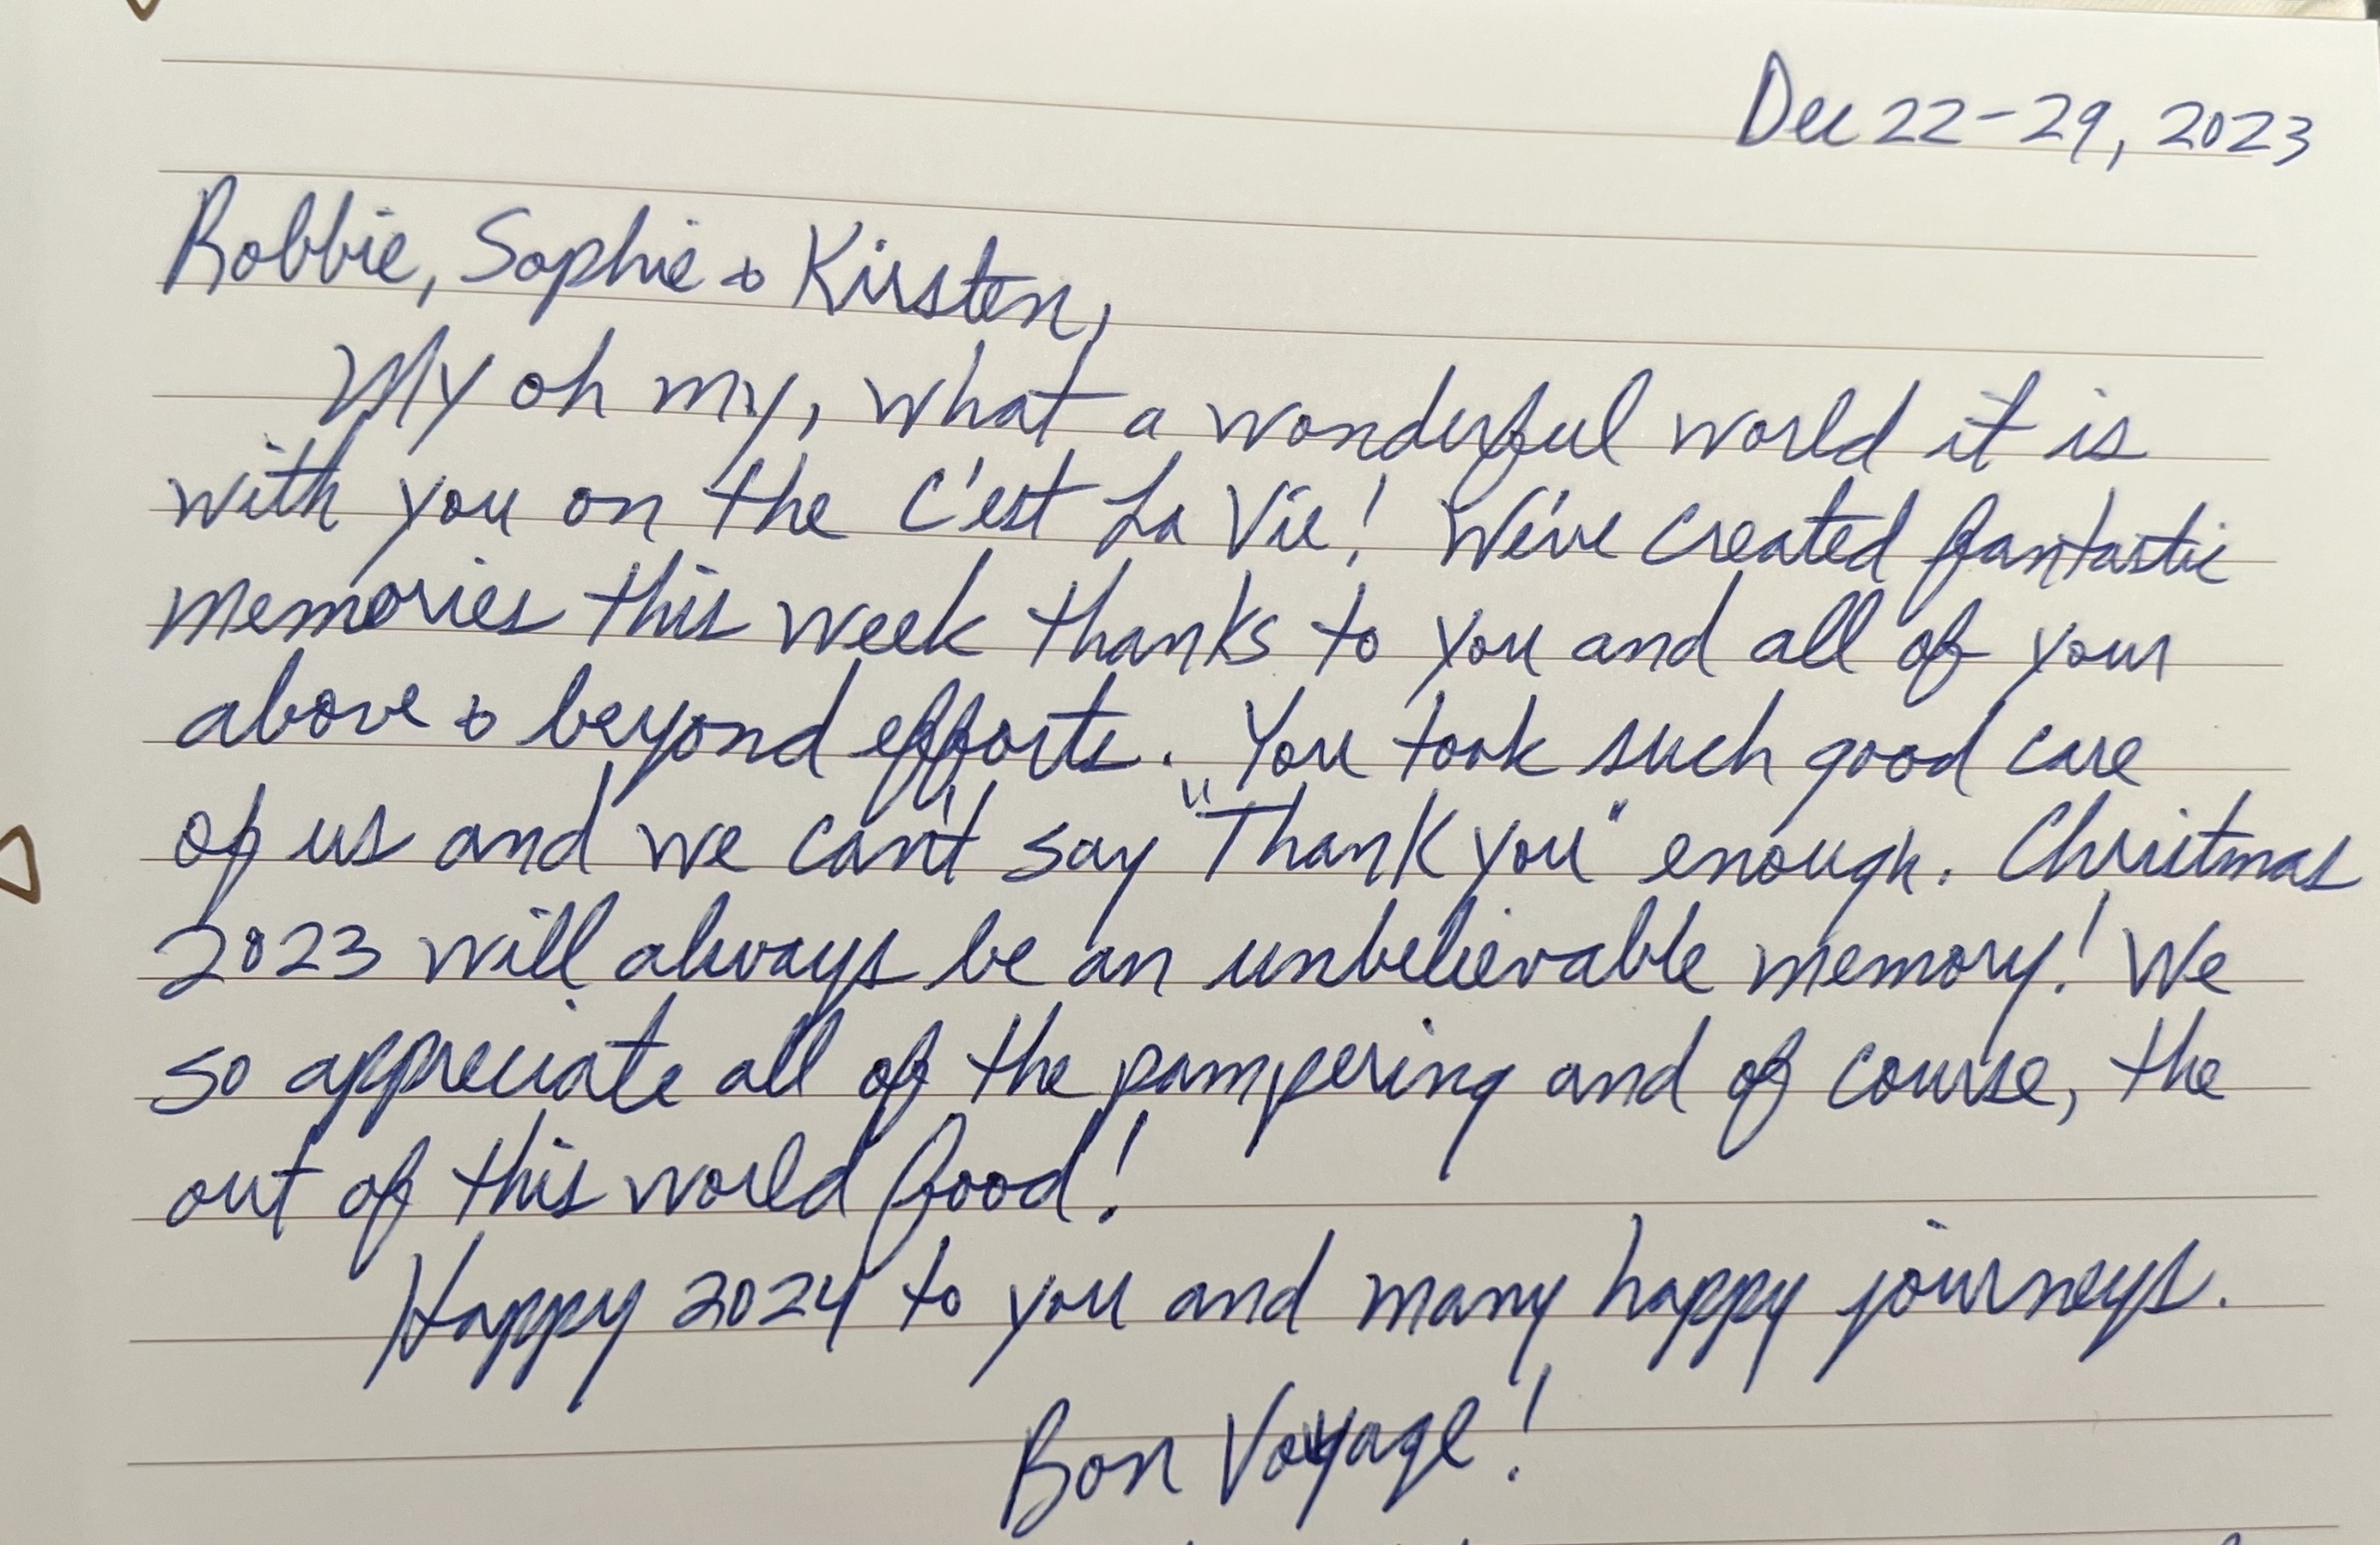 Dec 22-29, 2023
Robbie, Sophie & Kirsten,
My oh my, what a wonderful world it is
with you on the C'est La Vie! We've created fantastic
memories this week thanks to you and all of your
above & beyond efforts. You took such good care
of us and we can't say "Thank you" enough. Christmas
2023 will always be an unbelievable memory! We
so appreciate all of the pampering and of course, the
out of this world food!
Happy 2024 to you and many happy journeys.
Bon Voyage!